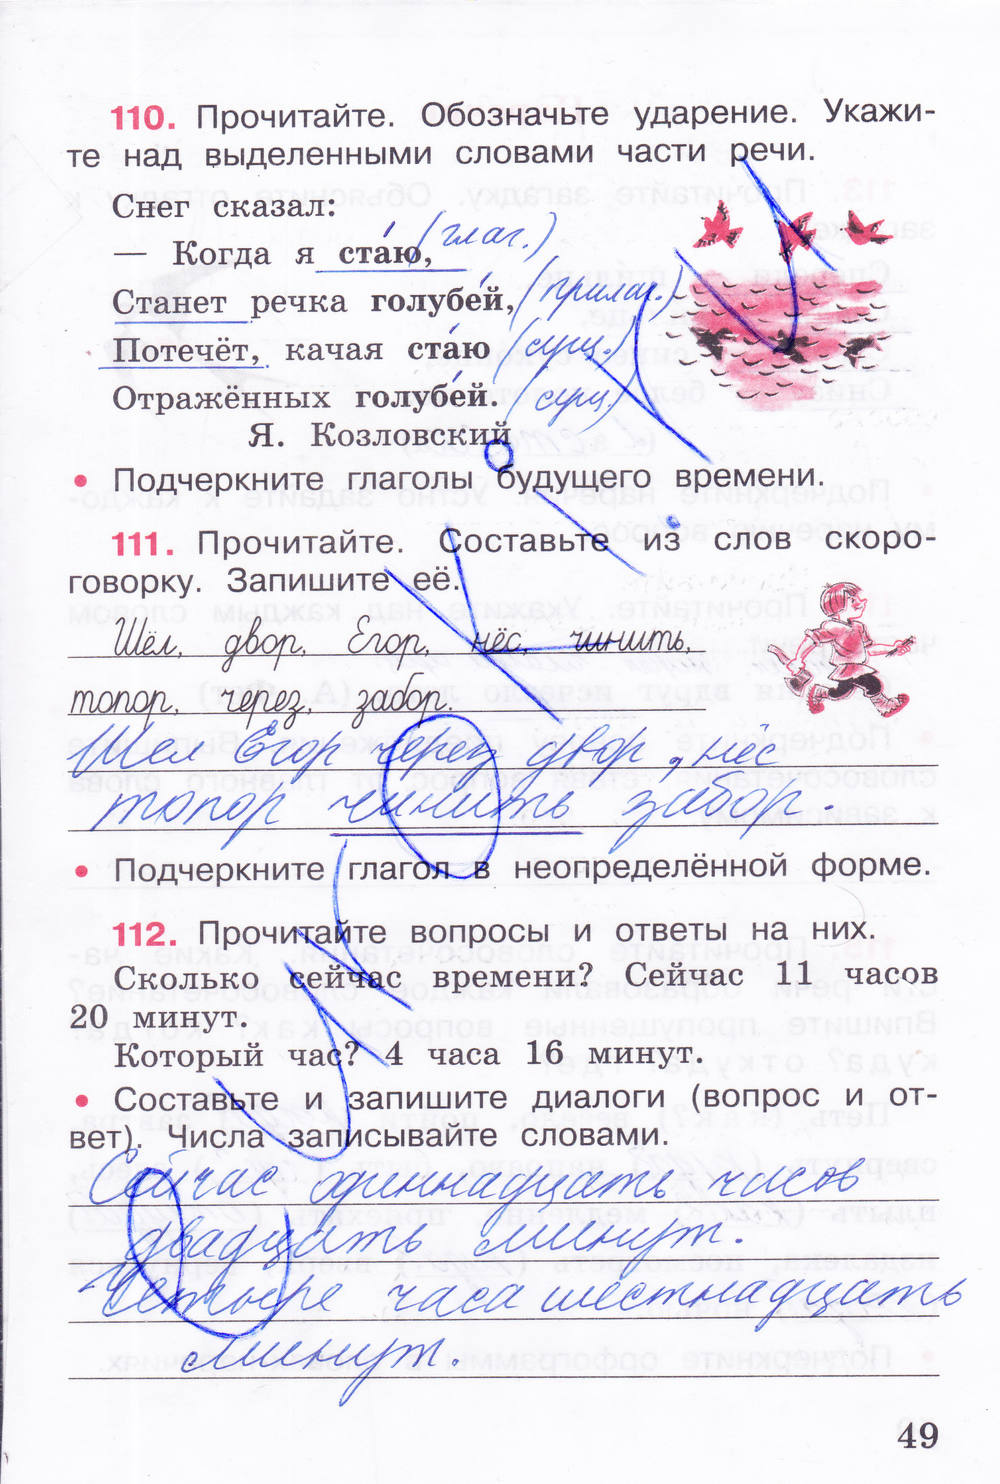 110. Прочитайте. Обозначьте ударение. Укажи-
те над выделенными словами части речи.
Снег сказал:
— Когда я ста́ю, (глаг.)
Станет речка голубе́й, (прилаг.)
Потечёт, качая ста́ю (сущ.)
Отражённых голубе́й. (сущ)
Я. Козловский
• Подчеркните глаголы будущего времени.
111. Прочитайте. Составьте из слов скоро-
говорку. Запишите её.
Шёл, двор, Егор, нёс, чинить,
топор, через, забор.
Шел Егор через двор, нёс
топор чинить забор.
• Подчеркните глагол в неопределённой форме.
112. Прочитайте вопросы и ответы на них.
Сколько сейчас времени? Сейчас 11 часов
20 минут.
Который час? 4 часа 16 минут.
• Составьте и запишите диалоги (вопрос и от-
вет). Числа записывайте словами.
Сейчас одиннадцать часов
двадцать минут.
Четыре часа шестнадцать
минут.
49